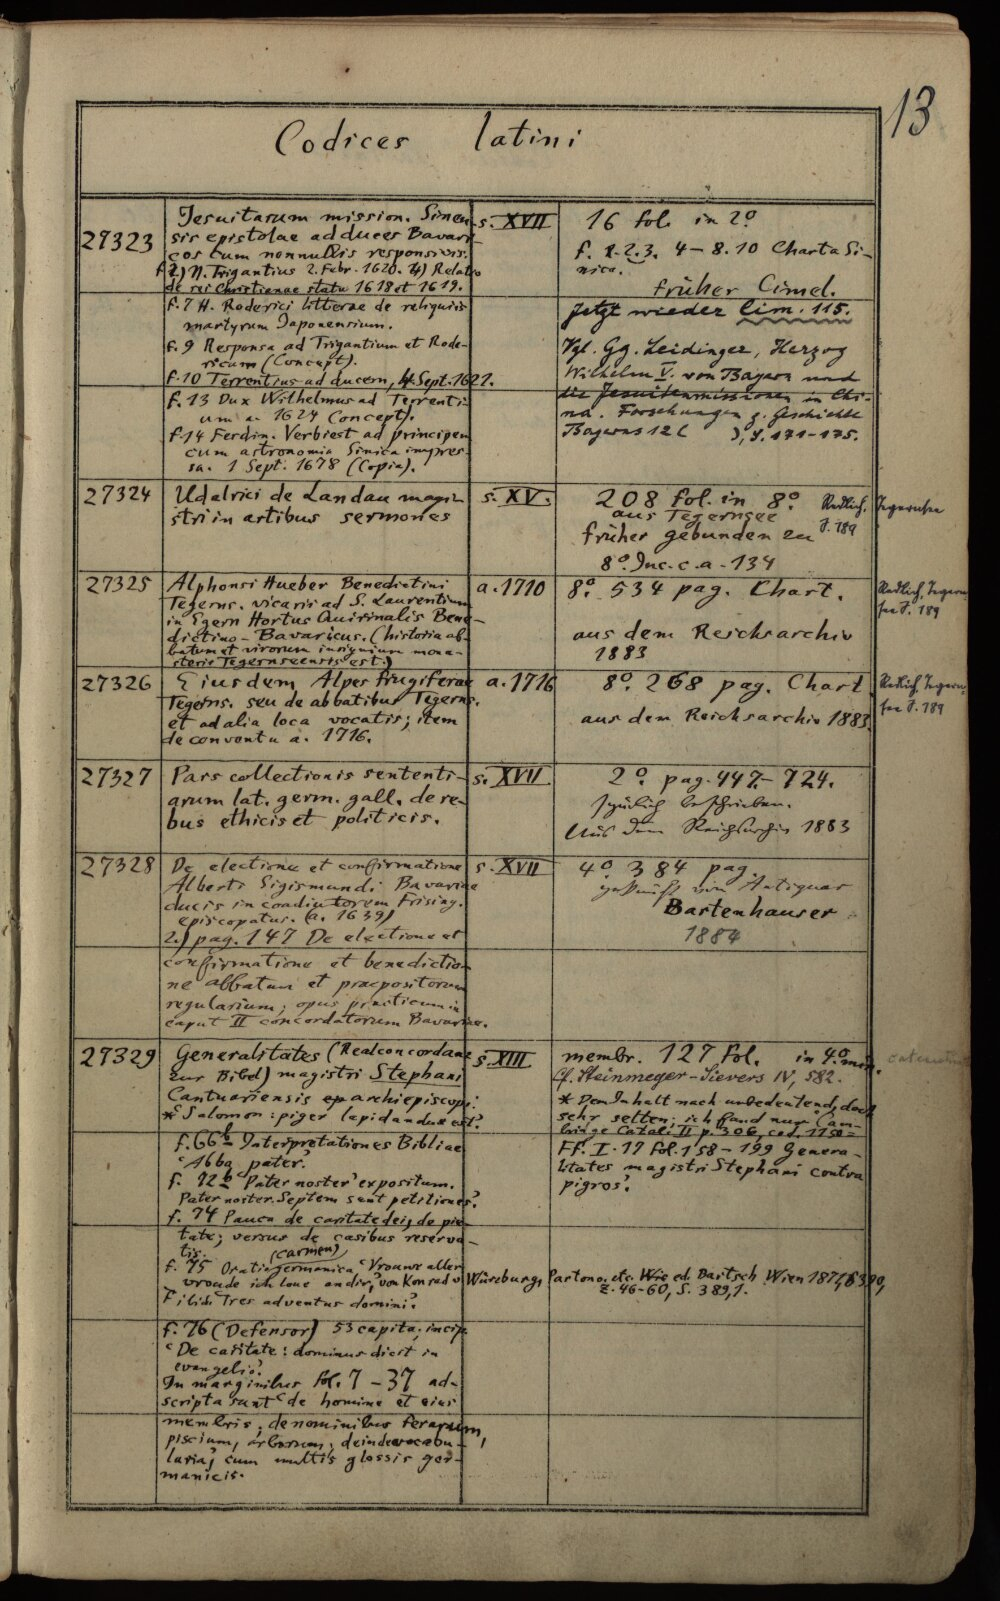 13
Codices latini
27323
Jesuitarum mission. Sinen-
sis epistolae ad duces Bavari-
cos cum nonnullis responsivis.
f. 2) N. Trigantius 2. Febr. 1620. 4) Relatio
de rei Christianae statu 1618 et 1619.
f. 7 H. Roderici litterae de reliquiis
martyrum Japonensium.
f. 9 Responsa ad Trigantium et Rode-
ricum (Concept).
f. 10 Terrentius ad ducem, 4. Sept. 1621.
f. 13 Dux Wilhelmus ad Terrenti-
um a. 1624 (Concept).
f. 14 Ferdin. Verbiest ad principem
cum astronomia Sinica impres-
sa. 1 Sept. 1678 (Copia).
s. XVII
16 fol. in 2°
f. 1. 2. 3. 4 – 8. 10 Charta Si-
nica.
früher Cimel.
Jetzt wieder Cim. 115.
Vgl. Gg. Leidinger, Herzog
Wilhelm V. von Bayern und
die Jesuitenmissionen in Chi-
na. Forschungen z. Geschichte
Bayerns 12 ( ), S. 171–175.
27324
Udalrici de Landau magi-
stri in artibus sermones
s. XV.
208 fol. in 8°.
aus Tegernsee
früher gebunden zu
8° Inc. c. a. 134
Redlich, Tegernsee
S. 189
27325
Alphonsi Hueber Benedictini
Tegerns. vicarii ad S. Laurentium
in Egern Hortus Quirinalis Bene-
dictino-Bavaricus. (historia ab-
batum et virorum insignium mona-
sterii Tegernseensis est.)
a. 1710
8° 534 pag. Chart.
aus dem Reichsarchiv
1883
Redlich, Tegern-
see S. 189
27326
Eiusdem Alpes frugiferae
Tegerns. seu de abbatibus Tegerns.
et ad alia loca vocatis; item
de conventu a. 1716.
a. 1716
8°. 268 pag. Chart.
aus dem Reichsarchiv 1883.
Redlich, Tegern-
see S. 189
27327
Pars collectionis sententi-
arum lat. germ. gall. de re-
bus ethicis et politicis.
s. XVII
2°. pag. 447–724.
beschrieben.
Aus dem Reichsarchiv 1883
27328
De electione et confirmatione
Alberti Sigismundi Bavariae
ducis in coadiutorem Frising.
episcopatus. (a. 1639)
2.) pag. 147 De electione et
confirmatione et benedictio-
ne abbatum et praepositorum
regularium, opus practicum in
caput II concordatorum Bavariae.
s. XVII
4° 384 pag.
gekauft von Antiquar
Bartenhauser
1884
27329
Generalitates (Realconcordanz
zur Bibel) magistri Stephani
Cantuariensis archiepiscopi:
*'Salomon: piger lapidandus est'.
f. 66b Interpretationes Bibliae
'Abba pater'.
f. 72b 'Pater noster' expositum.
Pater noster. Septem sunt petitiones'.
f. 74 Pauca de caritate dei, de pie-
tate; versus de casibus reserva-
tis.
(carmen)
f. 75 Oratio germanica 'Vrouwe aller
vroude ich loue an dir,' von Konrad v. Würzburg, Partono. etc. ed. Bartsch Wien 1871,
Z. 46–60, S. 389,1.
Ibid. 'Tres adventus domini'.
f. 76 (Defensor) 53 capita; incip.
'De caritate: dominus dicit in
evangelio'.
In marginibus fol. 7 – 37 ad-
scripta sunt 'de homine et eius
membris, de nominibus ferarum,
piscium, arborum, deinde vocabu-
laria, cum multis glossis ger-
manicis.
s. XIII
membr. 127 fol. in 4° min.
Cf. Steinmeyer-Sievers IV, 582.
* Dem Inhalt nach unbedeutend, doch
sehr selten; ich fand nur Cam-
bridge Catal. II p. 306, cod. 1150 =
Ff. I. 17 fol. 158 – 199 Genera-
litates magistri Stephani contra
pigros'.